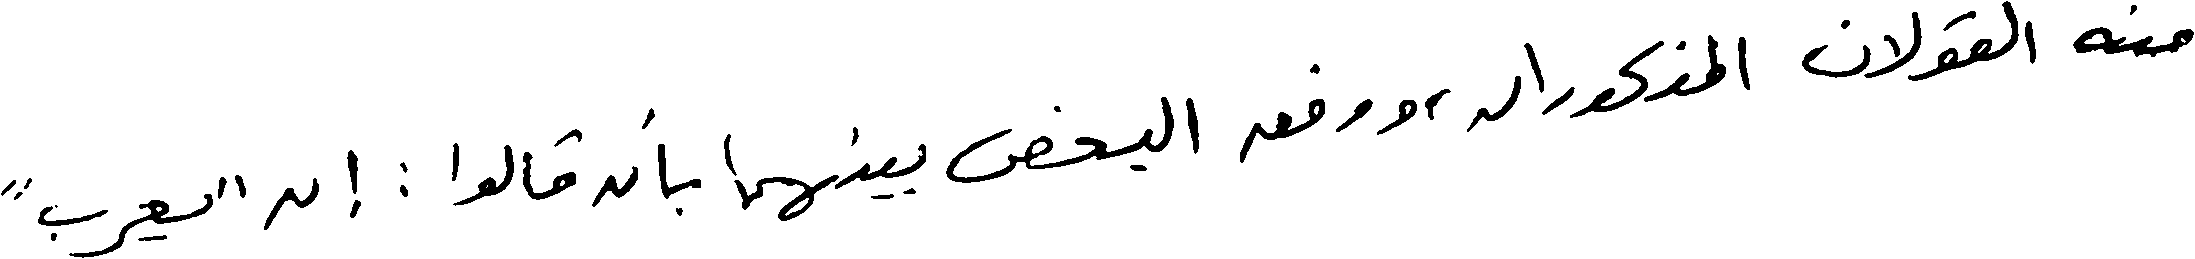 منه القولان المذكوران، ووفق البعض بينهما بأن قالوا: إن "يعرب"